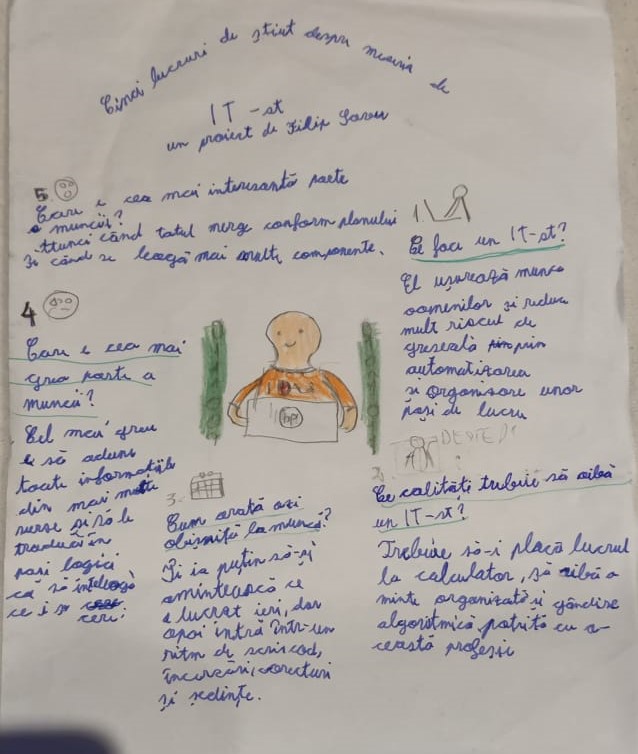 Cinci lucruri de știut despre meseria de
IT-st
un proiect de Filip
1.
Ce face un IT-st?
El ușurează munca
oamenilor și reduce
mult riscul de
greseală prin
automatizarea
si organisare unor
pași de lucru
2.
Ce calități trebuie să aibă
un IT-st?
Trebuie să-i placă lucrul
la calculator, să aibă o
minte organizată și gândire
algoritmică potrită cu a-
ceastă profesi
3.
Cum arată ozi
obișnuită la muncă?
Ți ia puțin să-și
amintească ce
a lucrat ieri, dar
apoi intră într-un
ritm de scris cod,
încercări, corecturi
și sedințe.
4
Care e cea mai
grea parte a
muncii?
Cel mai greu
e să adune
toate informațiile
din mai multe
surse și să le
traducă în
pasi logici
ca să înteleagă
ce i se
cere.
5
Care e cea mai interesantă parte
a muncii?
Atunci când totul merge conform planului
și când se leagă mai multe componente.
hp